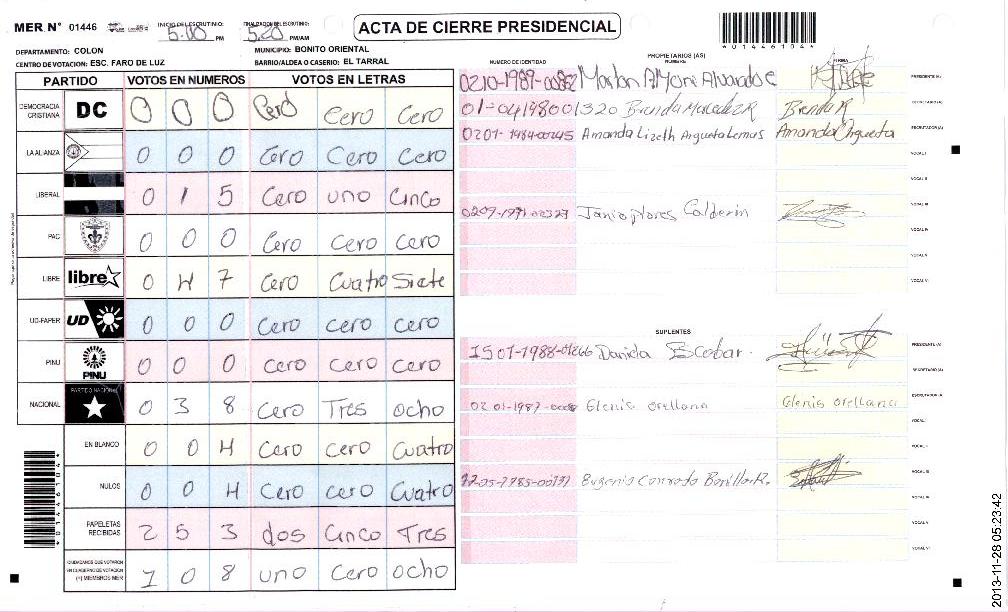 MER N° 01446
INICIO DE ESCRUTINIO: 5:00 PM
FINALIZACION DE ESCRUTINIO: 5:20 PM/AM
ACTA DE CIERRE PRESIDENCIAL
01446104
DEPARTAMENTO: COLON
MUNICIPIO: BONITO ORIENTAL
CENTRO DE VOTACION: ESC. FARO DE LUZ
BARRIO/ALDEA O CASERIO: EL TARRAL
PARTIDO VOTOS EN NUMEROS VOTOS EN LETRAS
DEMOCRACIA CRISTIANA DC 0 0 0 Cero Cero Cero
LA ALIANZA 0 0 0 Cero Cero Cero
LIBERAL 0 1 5 Cero uno Cinco
PAC 0 0 0 Cero Cero Cero
LIBRE libre 0 4 7 Cero Cuatro Siete
UD-FAPER UD 0 0 0 Cero cero Cero
PINU PINU 0 0 0 Cero Cero Cero
NACIONAL PARTIDO NACIONAL 0 3 8 Cero Tres ocho
EN BLANCO 0 0 4 Cero cero Cuatro
NULOS 0 0 4 Cero cero Cuatro
PAPELETAS RECIBIDAS 2 5 3 dos Cinco Tres
CIUDADANOS QUE VOTARON EN CUADERNO DE VOTACION (+) MIEMBROS MER 1 0 8 uno Cero ocho
01446104
NUMERO DE IDENTIDAD PROPIETARIOS (AS) NOMBRE FIRMA
0210-1989-00882 Marlon PRESIDENTE (A)
01-04198001320 Brenda Brenda R SECRETARIO (A)
0201-1984-00245 Amanda Lizeth Argueta Lemus Amanda Argueta ESCRUTADOR (A)
VOCAL I
VOCAL II
0209-1971-02327 Calderin VOCAL III
VOCAL IV
VOCAL V
VOCAL VI
SUPLENTES
1501-1988-01266 Daniela Escobar. PRESIDENTE (A)
SECRETARIO (A)
0201-1987- Glenis orellana Glenis orellana ESCRUTADOR (A)
VOCAL I
VOCAL II
Eugenio Conrado Bonilla R. VOCAL III
VOCAL IV
VOCAL V
VOCAL VI
2013-11-28 05:23:42